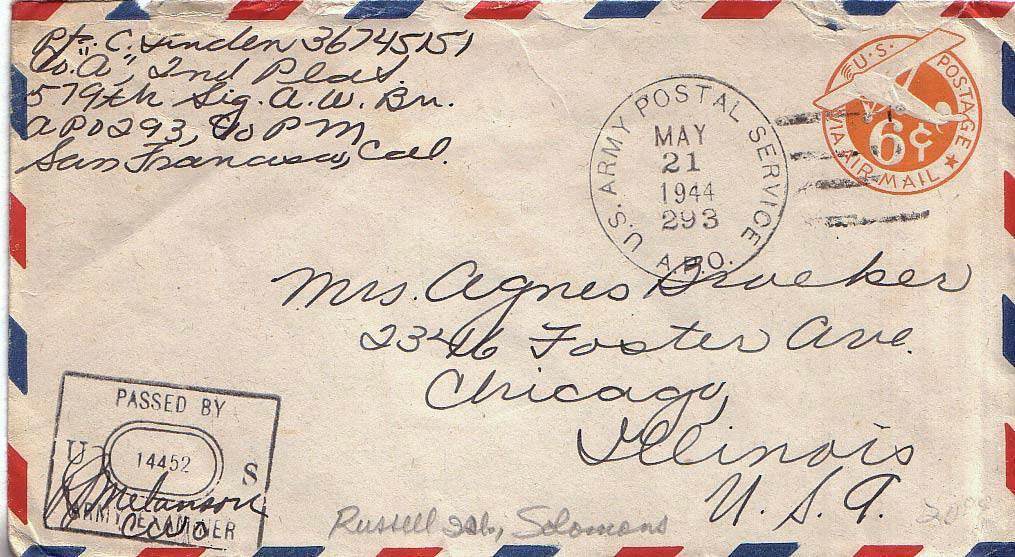 Pfc. C. Linden 36745151
Co. "A", 2nd Plat.
579th Sig. A.W. Bn.
APO 293, c/o PM
San Francisco, Cal.
U.S. POSTAGE
6¢
VIA AIR MAIL
U.S. ARMY POSTAL SERVICE
MAY
21
1944
293
A.P.O.
Mrs. Agnes
2346 Foster Ave.
Chicago,
Illinois
U. S. A.
PASSED BY
U 14452 S
ARMY EXAMINER
Melanson
CWO
Russell Isls, Solomons